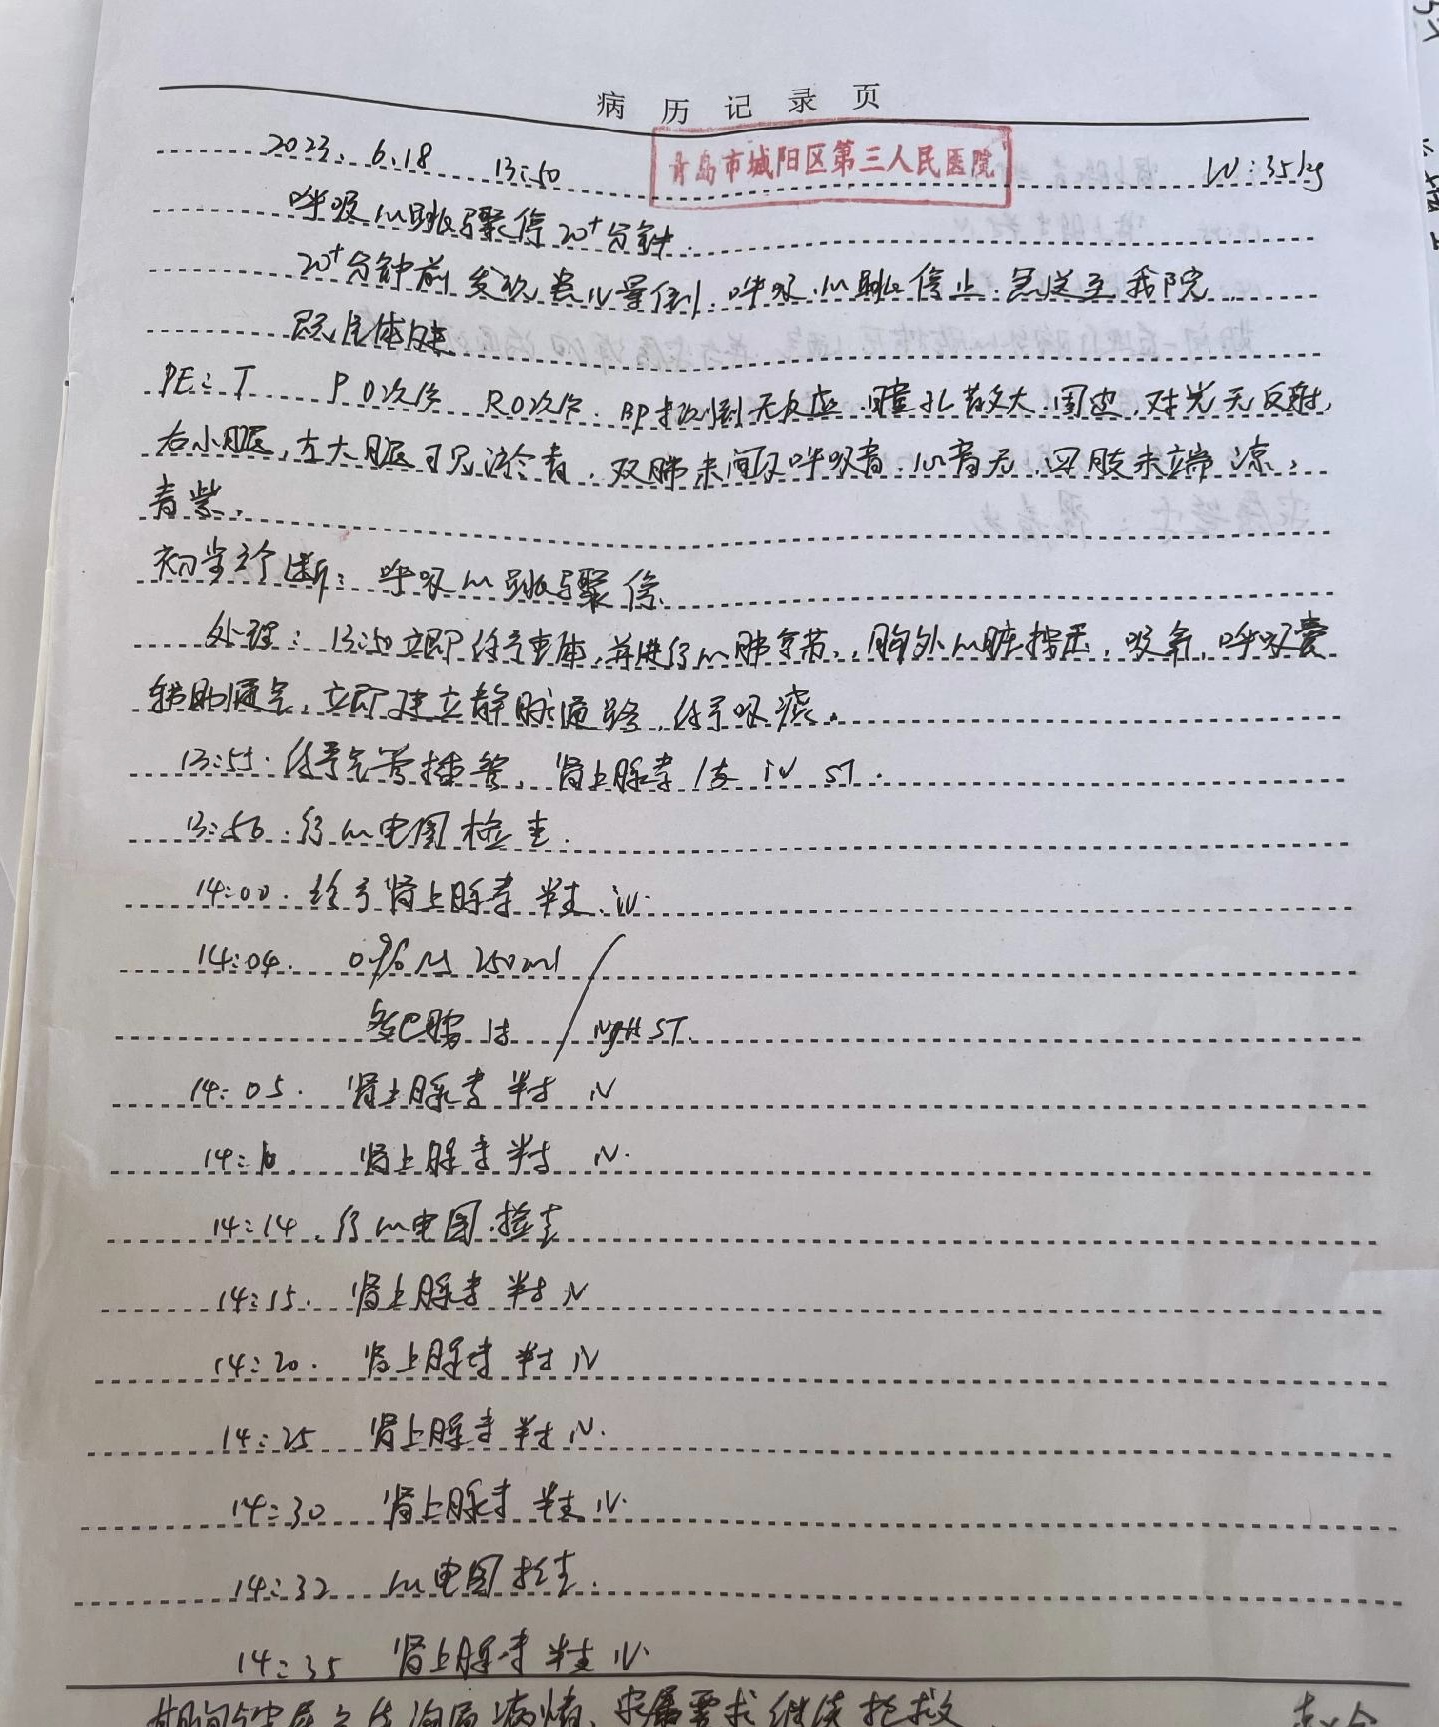 病历记录页
2023.6.18 13:50 青岛市城阳区第三人民医院 W:35kg
呼吸心跳骤停20+分钟.
20+分钟前发现患儿晕倒,呼吸、心跳停止.急送至我院.
既往体健
PE:T P0次/分 R0次/分. BP未测到 无反应,瞳孔散大,固定,对光无反射,
右小腿,左大腿可见淤青,双肺未闻及呼吸音,心音无,四肢末端凉,
青紫.
初步诊断:呼吸心跳骤停
处理:13:50立即 并进行心肺复苏,胸外心脏按压,吸氧,呼吸囊
辅助通气,立即建立静脉通路,给予吸痰.
13:55.给予气管插管,肾上腺素1支 iv ST.
13:56.行心电图检查.
14:00.给予肾上腺素半支 iv.
14:04. 0.9% NS 250ml
多巴胺 1支 ivgtt ST.
14:05. 肾上腺素半支 iv
14:10. 肾上腺素半支 iv.
14:14.行心电图检查
14:15. 肾上腺素半支 iv
14:20. 肾上腺素半支 iv
14:25 肾上腺素半支 iv.
14:30 肾上腺素半支 iv.
14:32 心电图检查.
14:35 肾上腺素半支 iv.
期间与家属 沟通病情,家属要求继续抢救